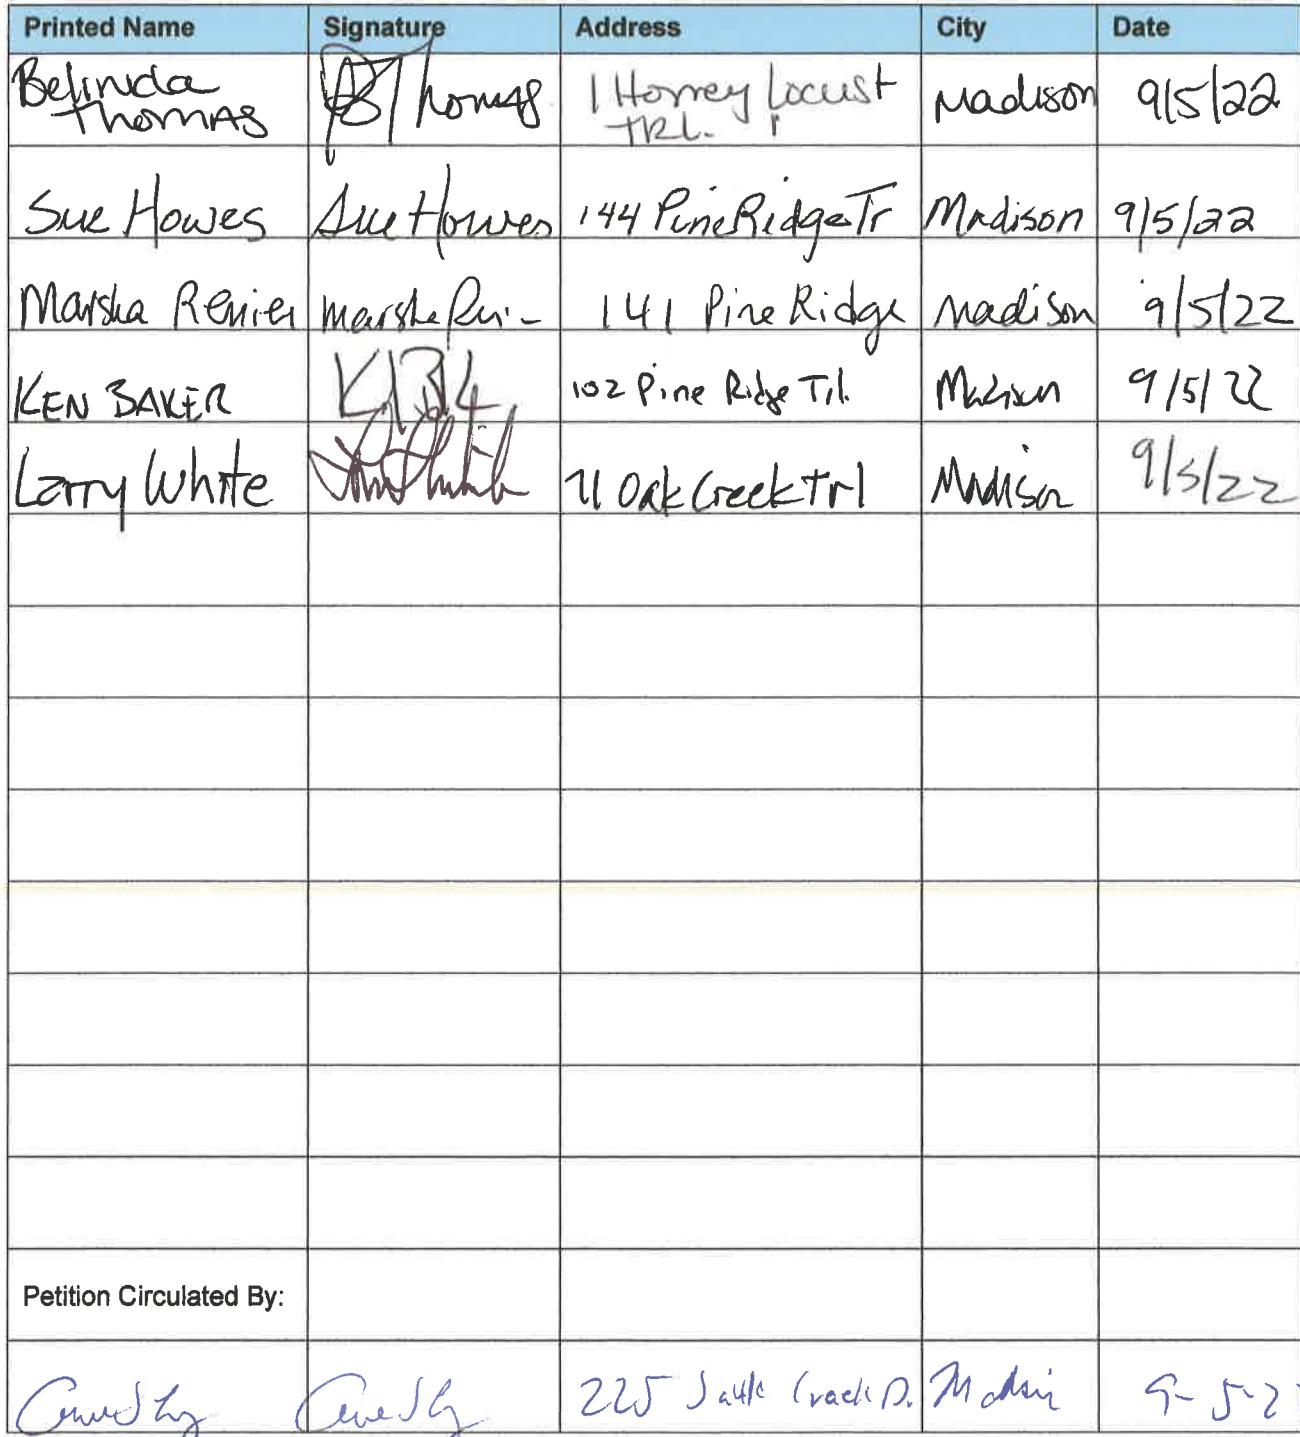 Printed Name Signature Address City Date
Belinda Thomas BThomas 1 Honey Locust TRL. Madison 9/5/22
Sue Howes Sue Howes 144 Pine Ridge Tr Madison 9/5/22
Marsha Renier Marsha 141 Pine Ridge Madison 9/5/22
KEN BAKER 102 Pine Ridge Trl. Madison 9/5/22
Larry White 71 Oak Creek Trl Madison 9/5/22
Petition Circulated By:
225 Creek D. Madison 9-5-2